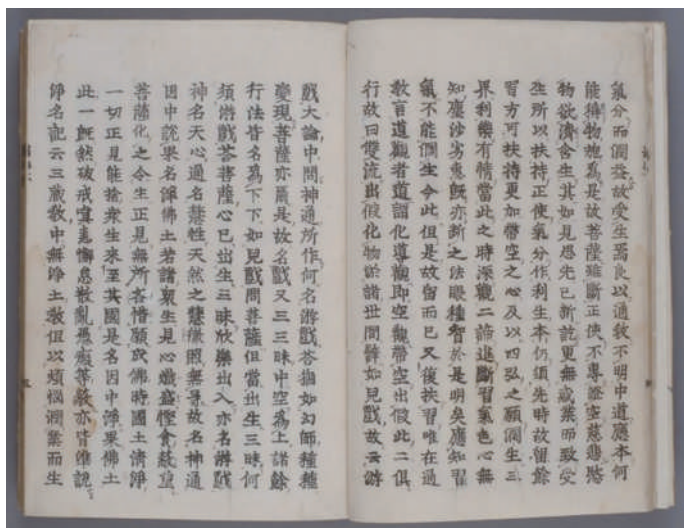 氣分而潤益故受生焉良以通教不明中道應本何
能稱物機為是故菩薩雖斷正使不專證空慈悲愍
物欲濟含生其如見思先已斷訖更無惑業而致受
生所以扶持正使氣分作利生本仍須先時故留餘
習方可扶持更加帶空之心及以四弘之願潤生三
界利樂有情當此之時深觀二諦進斷習氣色心無
知塵沙劣惠既亦斷之法眼種智於是明矣應知習
氣不能潤生令此但是故留而已又復扶習唯在過
教言道觀者道謂化導觀即空觀帶空出假此二俱
行故曰雙流出假化物於諸世間譬如兒戲故云游
戲大論中問神通所作何名游戲答猶如幻師種種
變現菩薩亦爾是故名戲又三三昧中空為上諸餘
行法皆名為下下如兒戲問菩薩但當出生三昧何
須游戲答菩薩心已出生三昧欣樂出入亦名游戲
神名天心通名慧性天然之慧徹照無导故名神通
因中說果名淨佛土若諸眾生見心熾盛慳食蔽重
菩薩化之令生正見無所吝惜願成佛時國土清淨
一切正見能捨眾生來至其國是名因中淨果佛土
此一既然破戒嗔恚懈怠散亂愚癡等教亦皆准說
淨名記云三藏教中無淨土教但以煩惱潤業而生